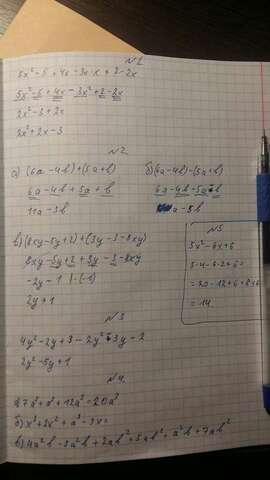 №1
5x²-5+4x-3x·x+2-2x
5x²-5+4x-3x²+2-2x
2x²-3+2x
2x²+2x-3
№2
а) (6a-4b)+(5a+b)
6a-4b+5a+b
11a-3b
б) (6a-4b)-(5a+b)
6a-4b-5a-b
a-5b
в) (8xy-5y+2)+(3y-3-8xy)
8xy-5y+2+3y-3-8xy
-2y-1 |·(-1)
2y+1
№5
5x²-6x+6
5·4-6·2+6=
=20-12+6=8+6
=14
№3
4y²-2y+3-2y²-3y-2
2y²-5y+1
№4.
a) 7a³+a³+12a³-20a³
б) x³+2x²+
в) 4a²b-3a²b+2ab²+5ab²=a²b+7ab²